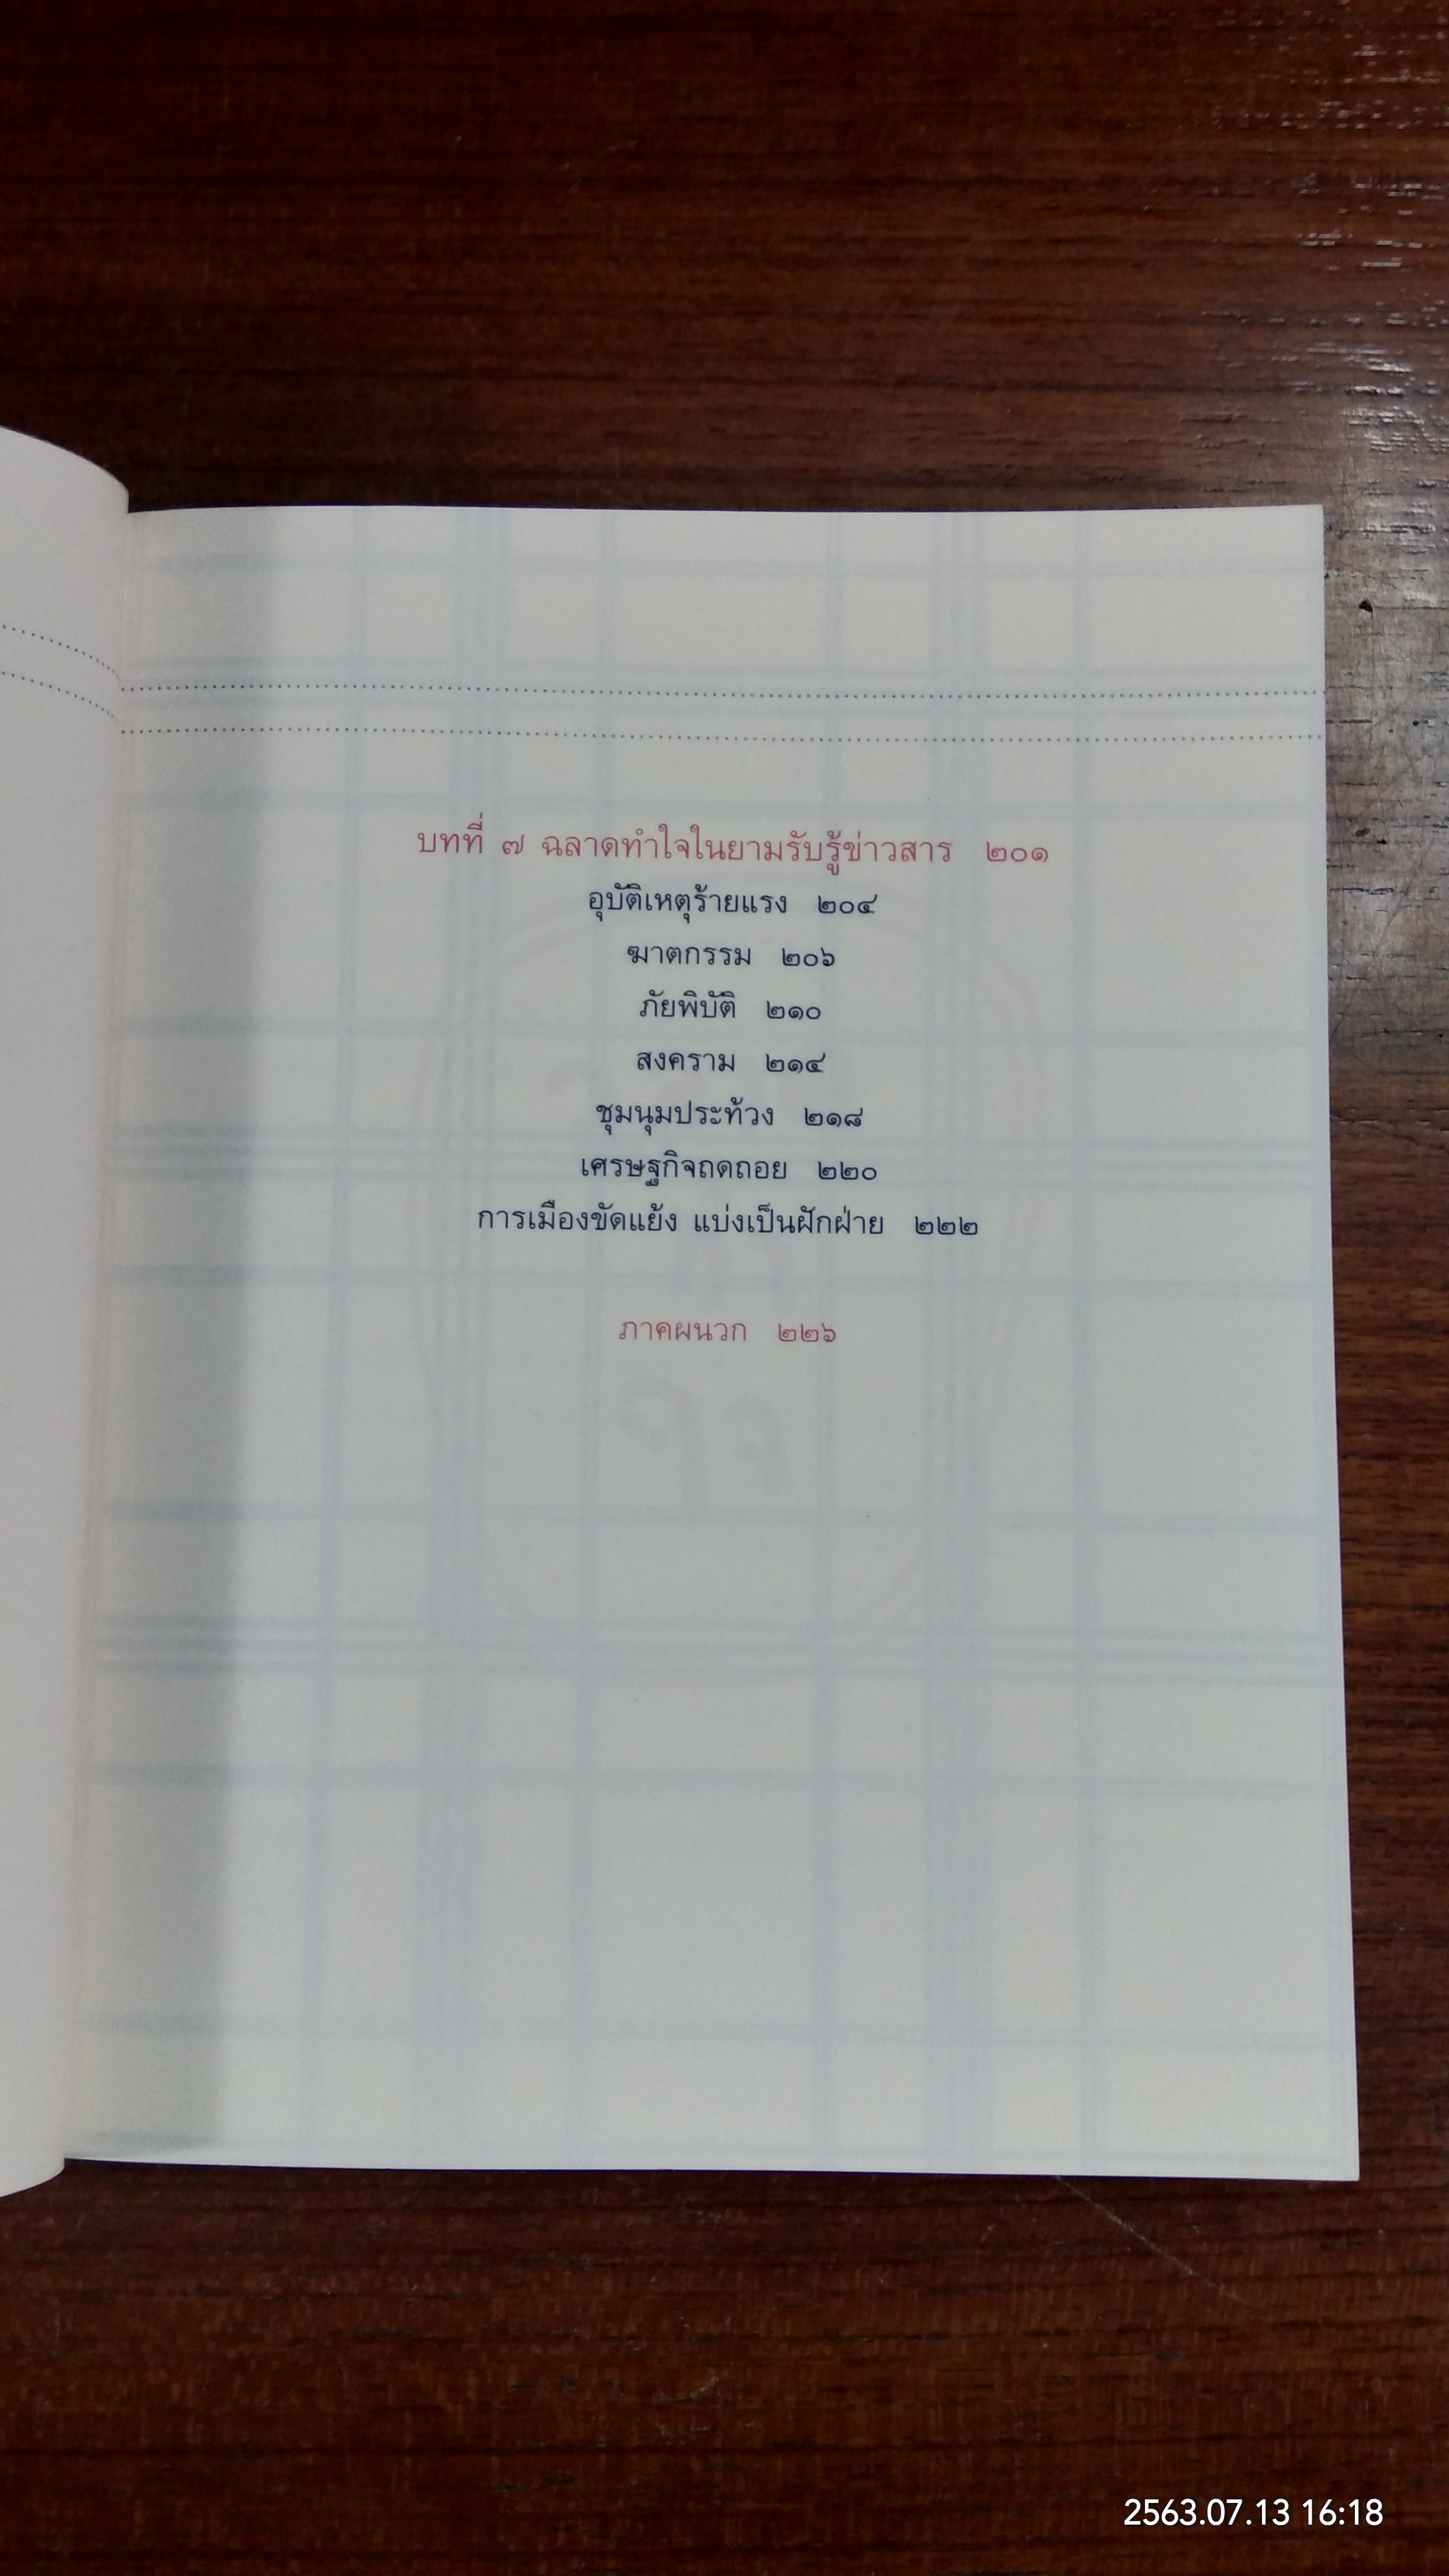 บทที่ ๗ ฉลาดทำใจในยามรับรู้ข่าวสาร ๒๐๑
อุบัติเหตุร้ายแรง ๒๐๔
ฆาตกรรม ๒๐๖
ภัยพิบัติ ๒๑๐
สงคราม ๒๑๔
ชุมนุมประท้วง ๒๑๘
เศรษฐกิจถดถอย ๒๒๐
การเมืองขัดแย้ง แบ่งเป็นฝักฝ่าย ๒๒๒
ภาคผนวก ๒๒๖
2563.07.13 16:18